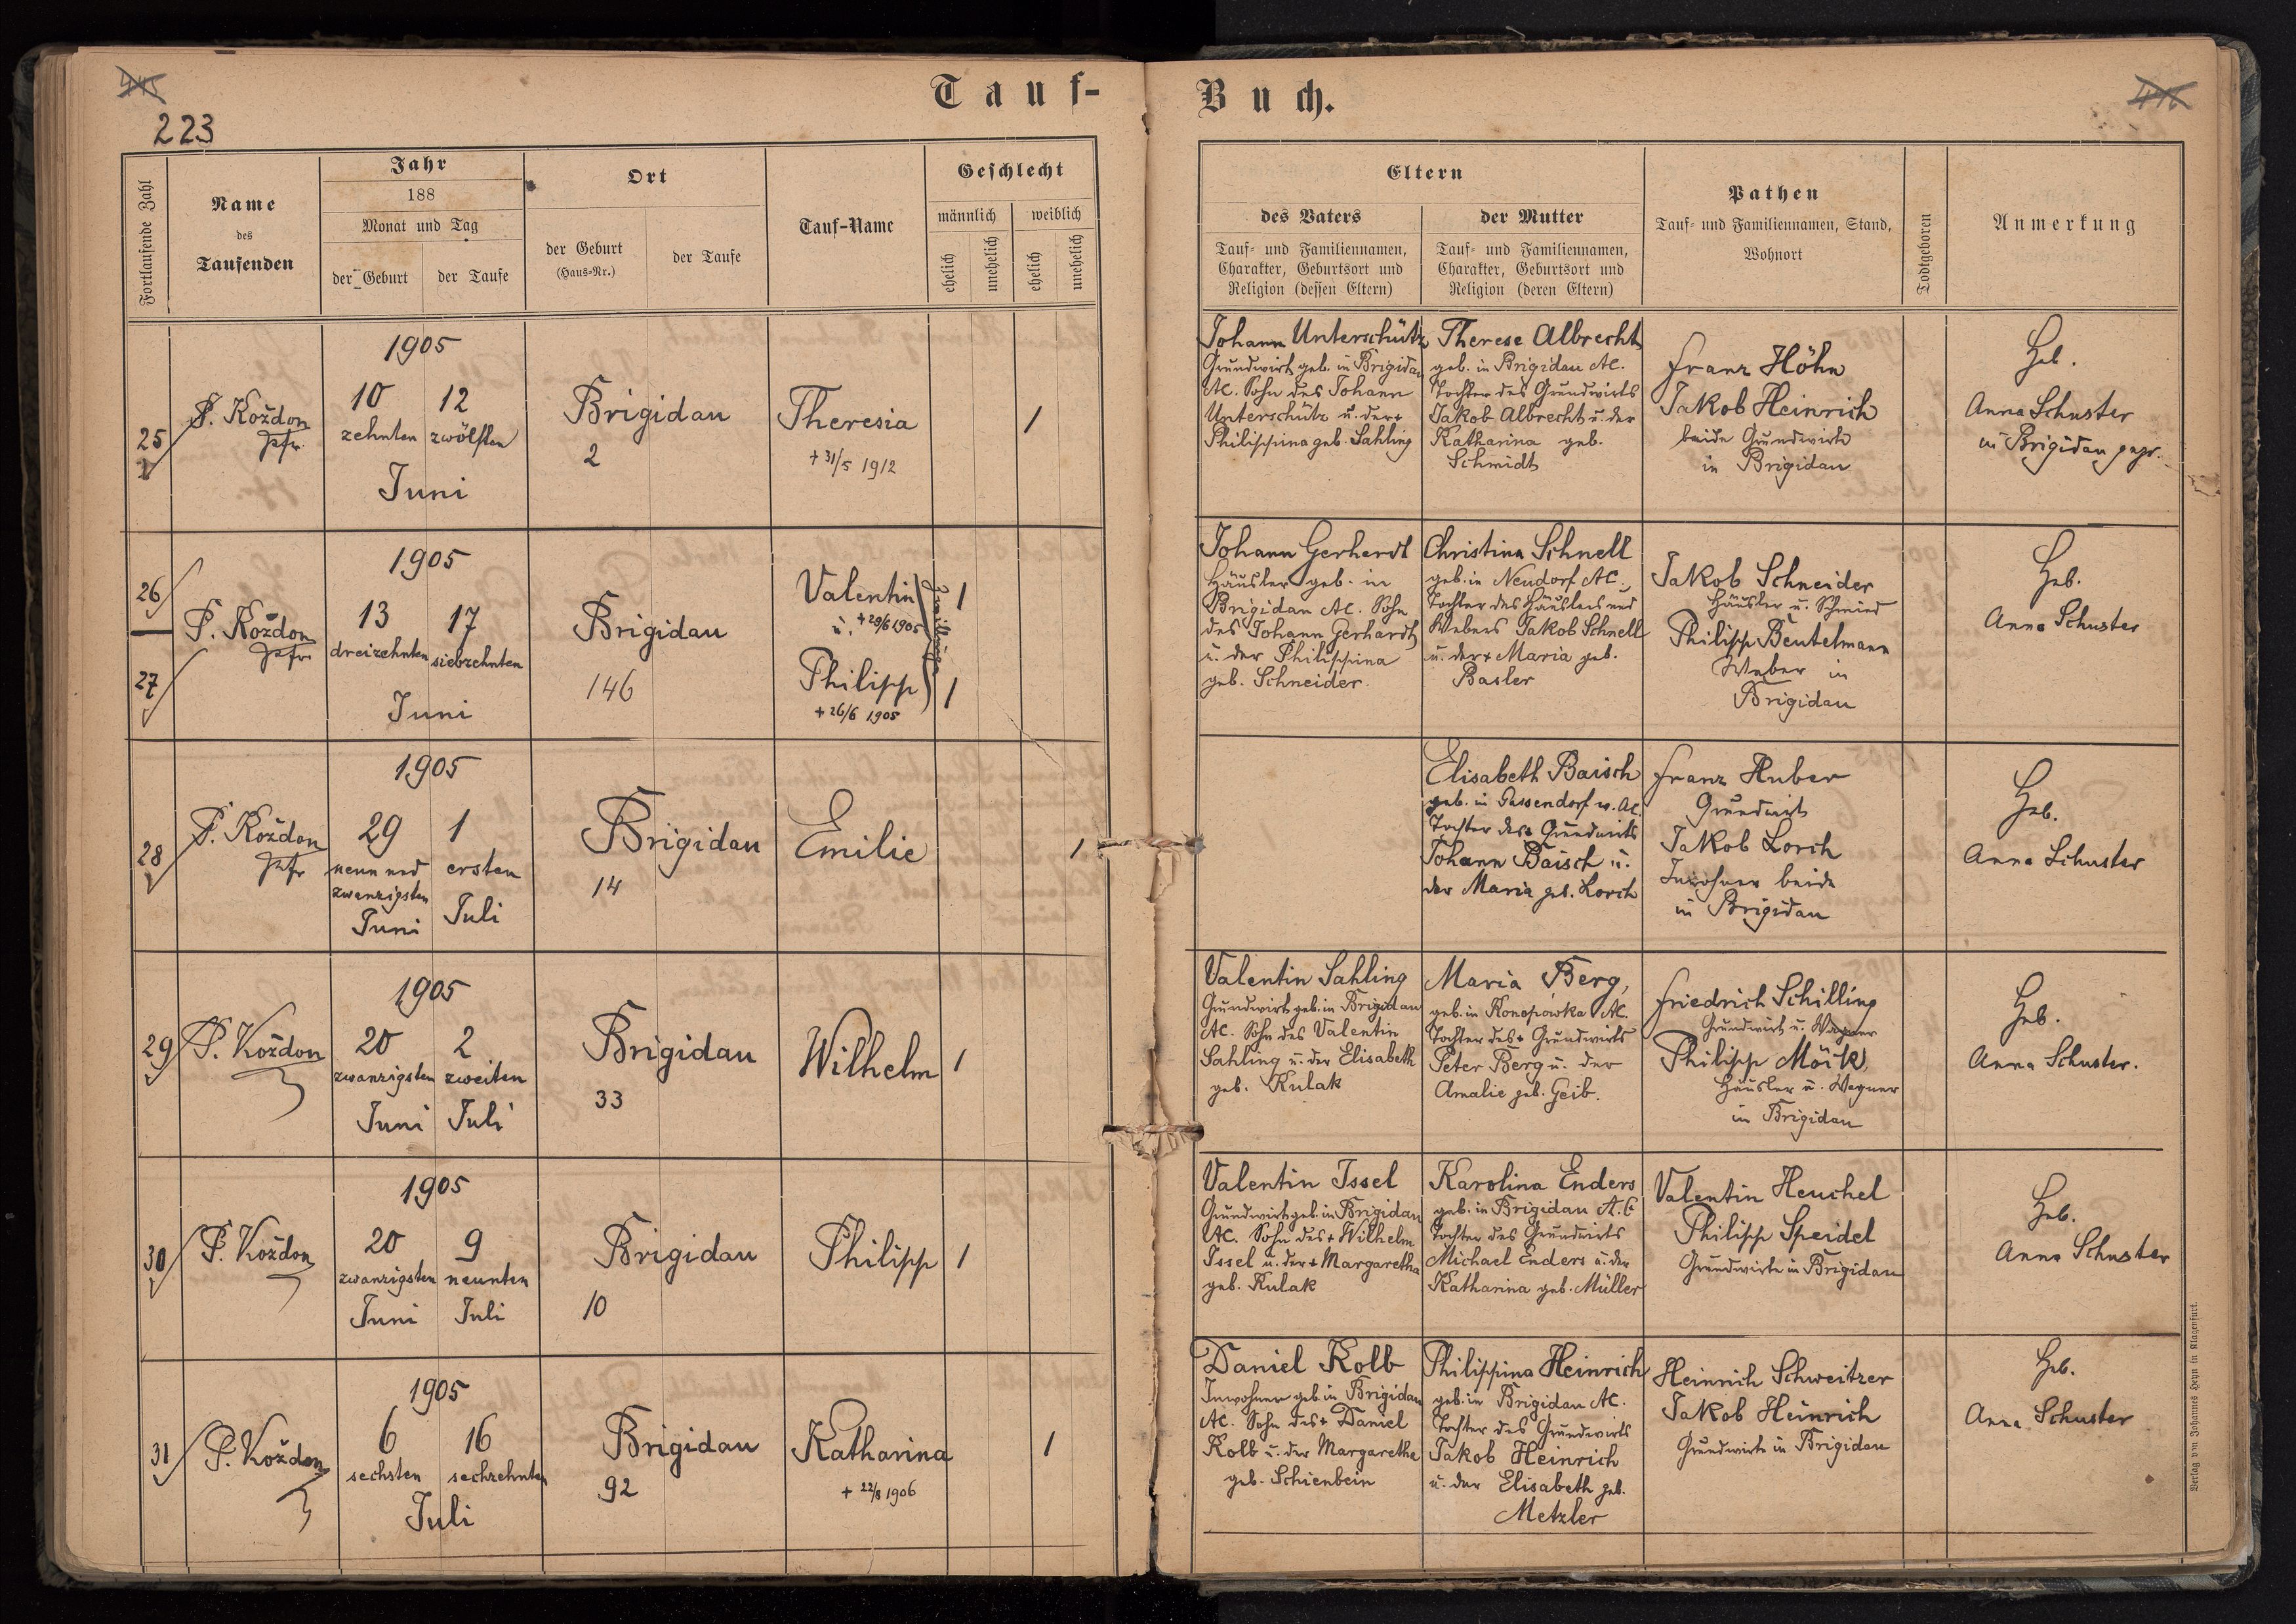 Tauf-
Buch.
223
Fortlaufende Zahl
Name
des
Taufenden
Jahr
188
Monat und Tag
der Geburt
der Taufe
Ort
der Geburt
(Haus-Nr.)
der Taufe
Tauf-Name
Geschlecht
männlich
weiblich
ehelich
unehelich
ehelich
unehelich
Eltern
des Vaters
Tauf- und Familiennamen,
Charakter, Geburtsort und
Religion (dessen Eltern)
der Mutter
Tauf- und Familiennamen,
Charakter, Geburtsort und
Religion (deren Eltern)
Pathen
Tauf- und Familiennamen, Stand,
Wohnort
Todtgeboren
Anmerkung
25
P. Koždon
Pfr.
1905
10 12
zehnten zwölften
Juni
Brigidau
2
Theresia
+ 31/5 1912
1
Johann Unterschütz
Grundwirt geb. in Brigidau
AC. Sohn des Johann
Unterschütz u. der +
Philippina geb. Sahling
Therese Albrecht
geb. in Brigidau AC.
Tochter des Grundwirts
Jakob Albrecht u. der
Katharina geb.
Schmidt
Franz Höhn
Jakob Heinrich
beide Grundwirte
in Brigidau
Heb.
Anna Schuster
in Brigidau gepr.
26
27
P. Koždon
Pfr
1905
13 17
dreizehnten siebzehnten
Juni
Brigidau
146
Valentin
u. + 29/6 1905
Philipp
+ 26/6 1905
Zwillinge
1
1
Johann Gerhardt
Häusler geb. in
Brigidau AC. Sohn
des Johann Gerhardt
u. der Philippina
geb. Schneider.
Christina Schnell
geb. in Neudorf AC.,
Tochter des Häuslers und
Webers Jakob Schnell
u. der + Maria geb.
Basler
Jakob Schneider
Häusler u. Schmied
Philipp Beutelmann
Weber in
Brigidau
Heb.
Anna Schuster
28
P. Koždon
Pfr
1905
29 1
neun und ersten
zwanzigsten
Juni Juli
Brigidau
14
Emilie
1
Elisabeth Baisch
geb. in Gassendorf w. AC.
Tochter des + Grundwirts
Johann Baisch u.
der Maria geb. Lorch
Franz Huber
Grundwirt
Jakob Lorch
Inwohner beide
in Brigidau
Heb.
Anna Schuster
29
P. Koždon
1905
20 2
zwanzigsten zweiten
Juni Juli
Brigidau
33
Wilhelm
1
Valentin Sahling
Grundwirt geb. in Brigidau
AC. Sohn des Valentin
Sahling u. der Elisabeth
geb. Kulak
Maria Berg,
geb. in Konopówka AC.
Tochter des + Grundwirts
Peter Berg u. der
Amalie geb. Geib.
Friedrich Schilling
Grundwirt u. Wagner
Philipp Möck,
Häusler u. Wagner
in Brigidau
Heb.
Anna Schuster.
30
P. Koždon
1905
20 9
zwanzigsten neunten
Juni Juli
Brigidau
10
Philipp
1
Valentin Issel
Grundwirt geb. in Brigidau
AC. Sohn des + Wilhelm
Issel u. der + Margaretha
geb. Kulak
Karolina Enders
geb. in Brigidau A.C
Tochter des Grundwirts
Michael Enders u. der
Katharina geb. Müller
Valentin Heuchel
Philipp Speidel
Grundwirte in Brigidau
Heb.
Anna Schuster
31
P. Koždon
1905
6 16
sechsten sechzehnten
Juli
Brigidau
92
Katharina
+ 22/8 1906
1
Daniel Kolb
Inwohner geb in Brigidau
AC. Sohn des + Daniel
Kolb u. der Margaretha
geb. Schienbein
Philippina Heinrich
geb. in Brigidau AC.
Tochter des Grundwirts
Jakob Heinrich
u. der Elisabeth geb.
Metzler
Heinrich Schweitzer
Jakob Heinrich
Grundwirte in Brigidau
Heb.
Anna Schuster
Verlag von Johannes Heyn in Klagenfurt.